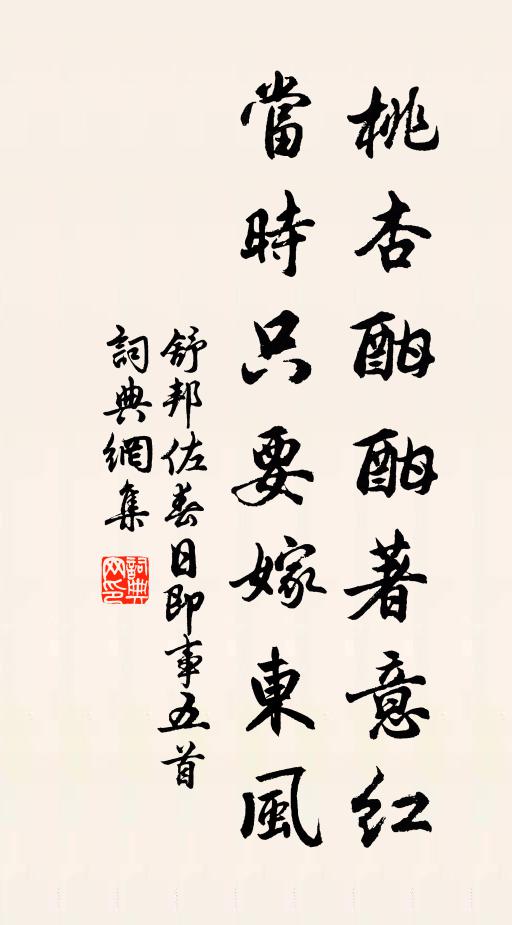 桃杏酣酣著意紅
當時只要嫁東風
舒邦佐春日即事五首
詞典網集
詞典
网印